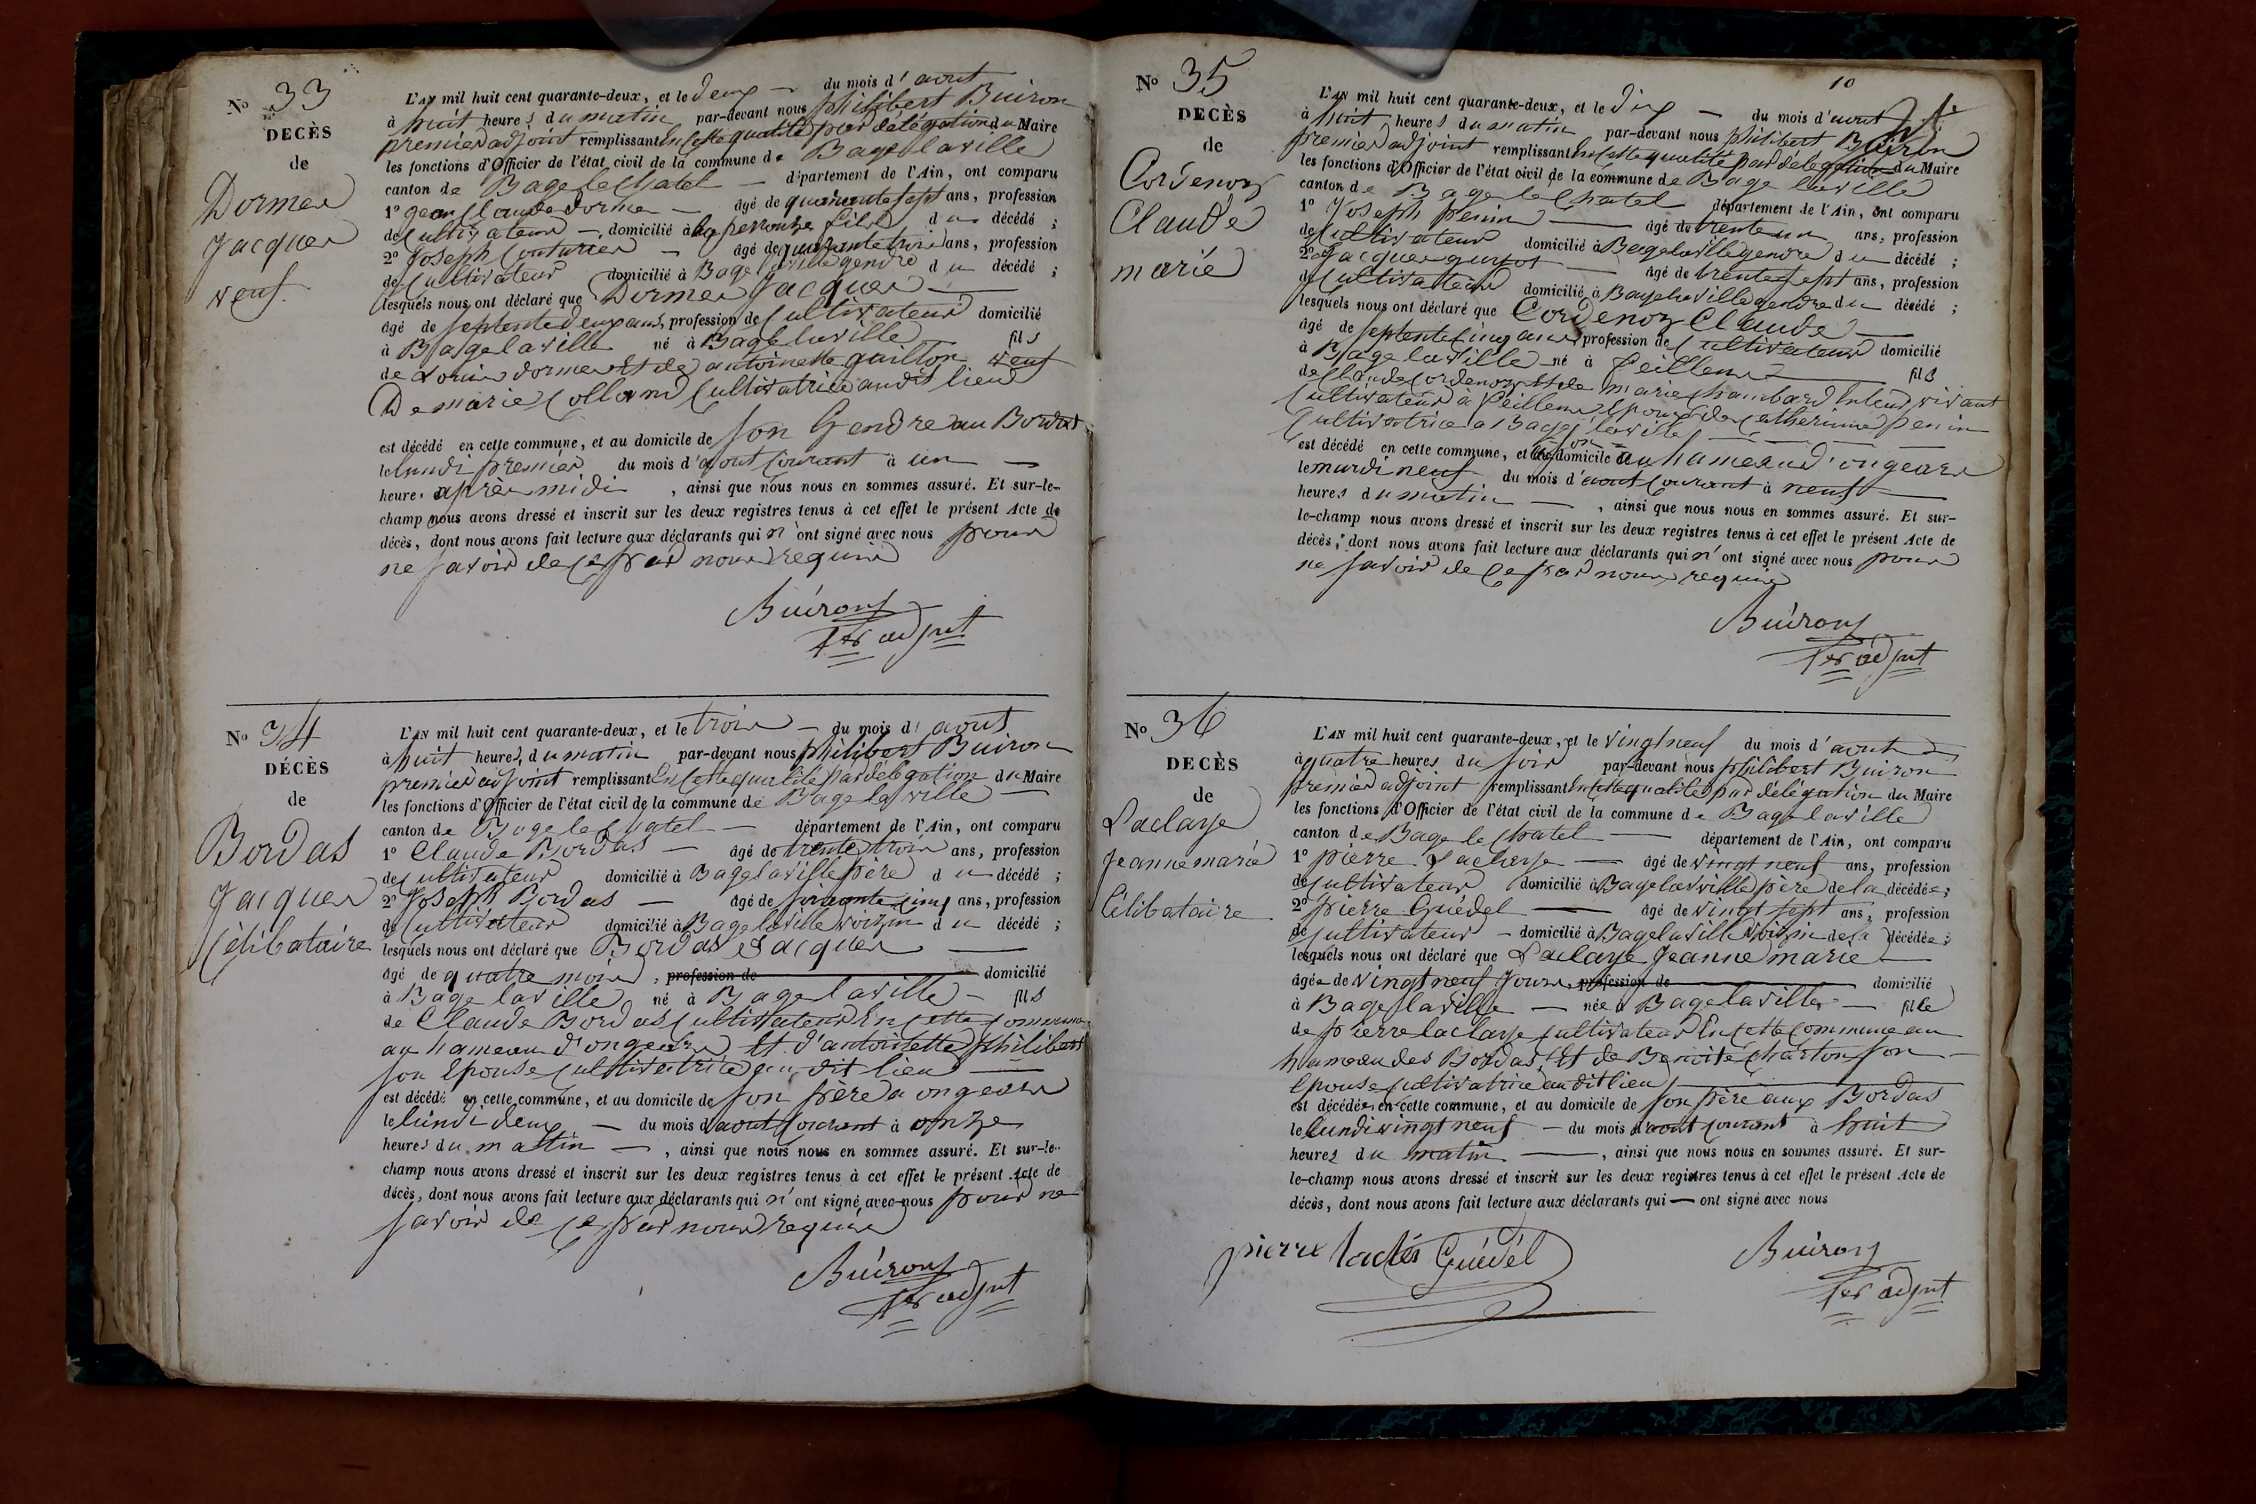 N° 33
DECÈS
de
Dormes
Jacques
veuf.
L'AN mil huit cent quarante-deux, et le deux du mois d'aout
à huit heures du matin par-devant nous philibert Buiron
premier adjoint remplissant En cette qualité par délégation du Maire
les fonctions d'Officier de l'état civil de la commune de Bagé la ville
canton de Bagé le chatel — département de l'Ain, ont comparu
1° jean Claude dorme — âgé de quarante sept ans, profession
de Cultivateur —, domicilié à fils du décédé ;
2° Joseph Couturier — âgé de quarante trois ans, profession
de Cultivateur domicilié à Bagé laville gendre du décédé ;
lesquels nous ont déclaré que Dormes Jacques —
âgé de septente deux ans, profession de Cultivateur domicilié
à Bagé laville né à Bagé laville fils
de Louis dormes Et de antoinette guillon veuf
De marie Colland Cultivatrice audit lieu
est décédé en cette commune, et au domicile de son Gendre au Bordas
le lundi premier du mois d'aout Courant à un —
heure après midi , ainsi que nous nous en sommes assuré. Et sur-le-
champ nous avons dressé et inscrit sur les deux registres tenus à cet effet le présent Acte de
décès, dont nous avons fait lecture aux déclarants qui n'ont signé avec nous pour
ne savoir de ce par nous requis
Buiron
1er adjnt
N° 34
DÉCÈS
de
Bordas
Jacques
Célibataire
L'AN mil huit cent quarante-deux, et le trois — du mois d' aout
à huit heures du matin par-devant nous philibert Buiron
premier adjoint remplissant En cette qualité par délégation du Maire
les fonctions d'Officier de l'état civil de la commune de Bagé la ville
canton de Bagé le chatel — département de l'Ain, ont comparu
1° Claude Bordas — âgé de trente trois ans, profession
de Cultivateur domicilié à Bagé laville père du décédé ;
2° Joseph Bordas — âgé de soixante cinq ans, profession
de Cultivateur domicilié à Bagé laville voizin du décédé ;
lesquels nous ont déclaré que Bordas Jacques —
âgé de quatre mois, profession de domicilié
à Bagé laville né à Bagé laville — fils
de Claude Bordas Cultivateur En cette commune
au hameau d'ongeare Et d'antoinette philibert
son Epouse Cultivatrice au dit lieu —
est décédé en cette commune, et au domicile de son père à ongeare
le lundi deux — du mois d'aout Courant à onze
heures du mattin —, ainsi que nous nous en sommes assuré. Et sur-le-
champ nous avons dressé et inscrit sur les deux registres tenus à cet effet le présent Acte de
décès, dont nous avons fait lecture aux déclarants qui n'ont signé avec nous pour ne
savoir de ce par nous requis
Buiron
1er adjnt
10
N° 35
DECÈS
de
Cordenoz
Claude
marié
L'AN mil huit cent quarante-deux, et le dix — du mois d'aout
à huit heures du matin par-devant nous philibert Buiron
premier adjoint remplissant En cette qualité par délégation du Maire
les fonctions d'Officier de l'état civil de la commune de Bagé laville
canton de Bagé le Chatel département de l'Ain, ont comparu
1° Joseph penin — âgé de trente un ans, profession
de Cultivateur domicilié à Bagé laville gendre du décédé ;
2° Jacques guyot — âgé de trente sept ans, profession
de Cultivateur domicilié à Bagé la ville gendre du décédé ;
lesquels nous ont déclaré que Cordenoz Claude —
âgé de septente Cinq ans, profession de Cultivateur domicilié
à Bagé laville né à feillens — fils
de Claude Cordenoz Et de marie Chambard vivant
Cultivateur à feillens Epoux de Catherinne penin
Cultivatrice à Bagé laville —
est décédé en cette commune, et à son domicile au hameau d'ongeare
le mardi neuf du mois d'aout Courant à neuf —
heures du matin —, ainsi que nous nous en sommes assuré. Et sur-
le-champ nous avons dressé et inscrit sur les deux registres tenus à cet effet le présent Acte de
décès, dont nous avons fait lecture aux déclarants qui n'ont signé avec nous pour
ne savoir de ce par nous requis
Buiron
1er adjnt
N° 36
DECÈS
de
Laclaye
Jeanne marie
Célibataire
L'AN mil huit cent quarante-deux, et le vingt neuf du mois d'aout
à quatre heures du soir par-devant nous philibert Buiron
premier adjoint remplissant En cette qualité par délégation du Maire
les fonctions d'Officier de l'état civil de la commune de Bagé laville
canton de Bagé le chatel — département de l'Ain, ont comparu
1° pierre Laclaye — âgé de vingt neuf ans, profession
de Cultivateur domicilié à Bagé laville père de la décédée ;
2° pierre Guédel — âgé de vingt sept ans, profession
de Cultivateur — domicilié à Bagé laville voizin de la décédée ;
lesquels nous ont déclaré que Laclaye Jeanne marie —
âgée de vingt neuf Jours, profession de domicilié
à Bagé laville — née à Bagé laville — fille
de pierre laclaye Cultivateur En cette commune au
hameau des Bordas, Et de Benoite charton son —
Epouse Cultivatrice au dit lieu —
est décédée en cette commune, et au domicile de son père aux Bordas
le lundi vingt neuf — du mois d'aout Courant à huit
heures du matin —, ainsi que nous nous en sommes assuré. Et sur-
le-champ nous avons dressé et inscrit sur les deux registres tenus à cet effet le présent Acte de
décès, dont nous avons fait lecture aux déclarants qui — ont signé avec nous
pierre Guédel Buiron
1er adjnt